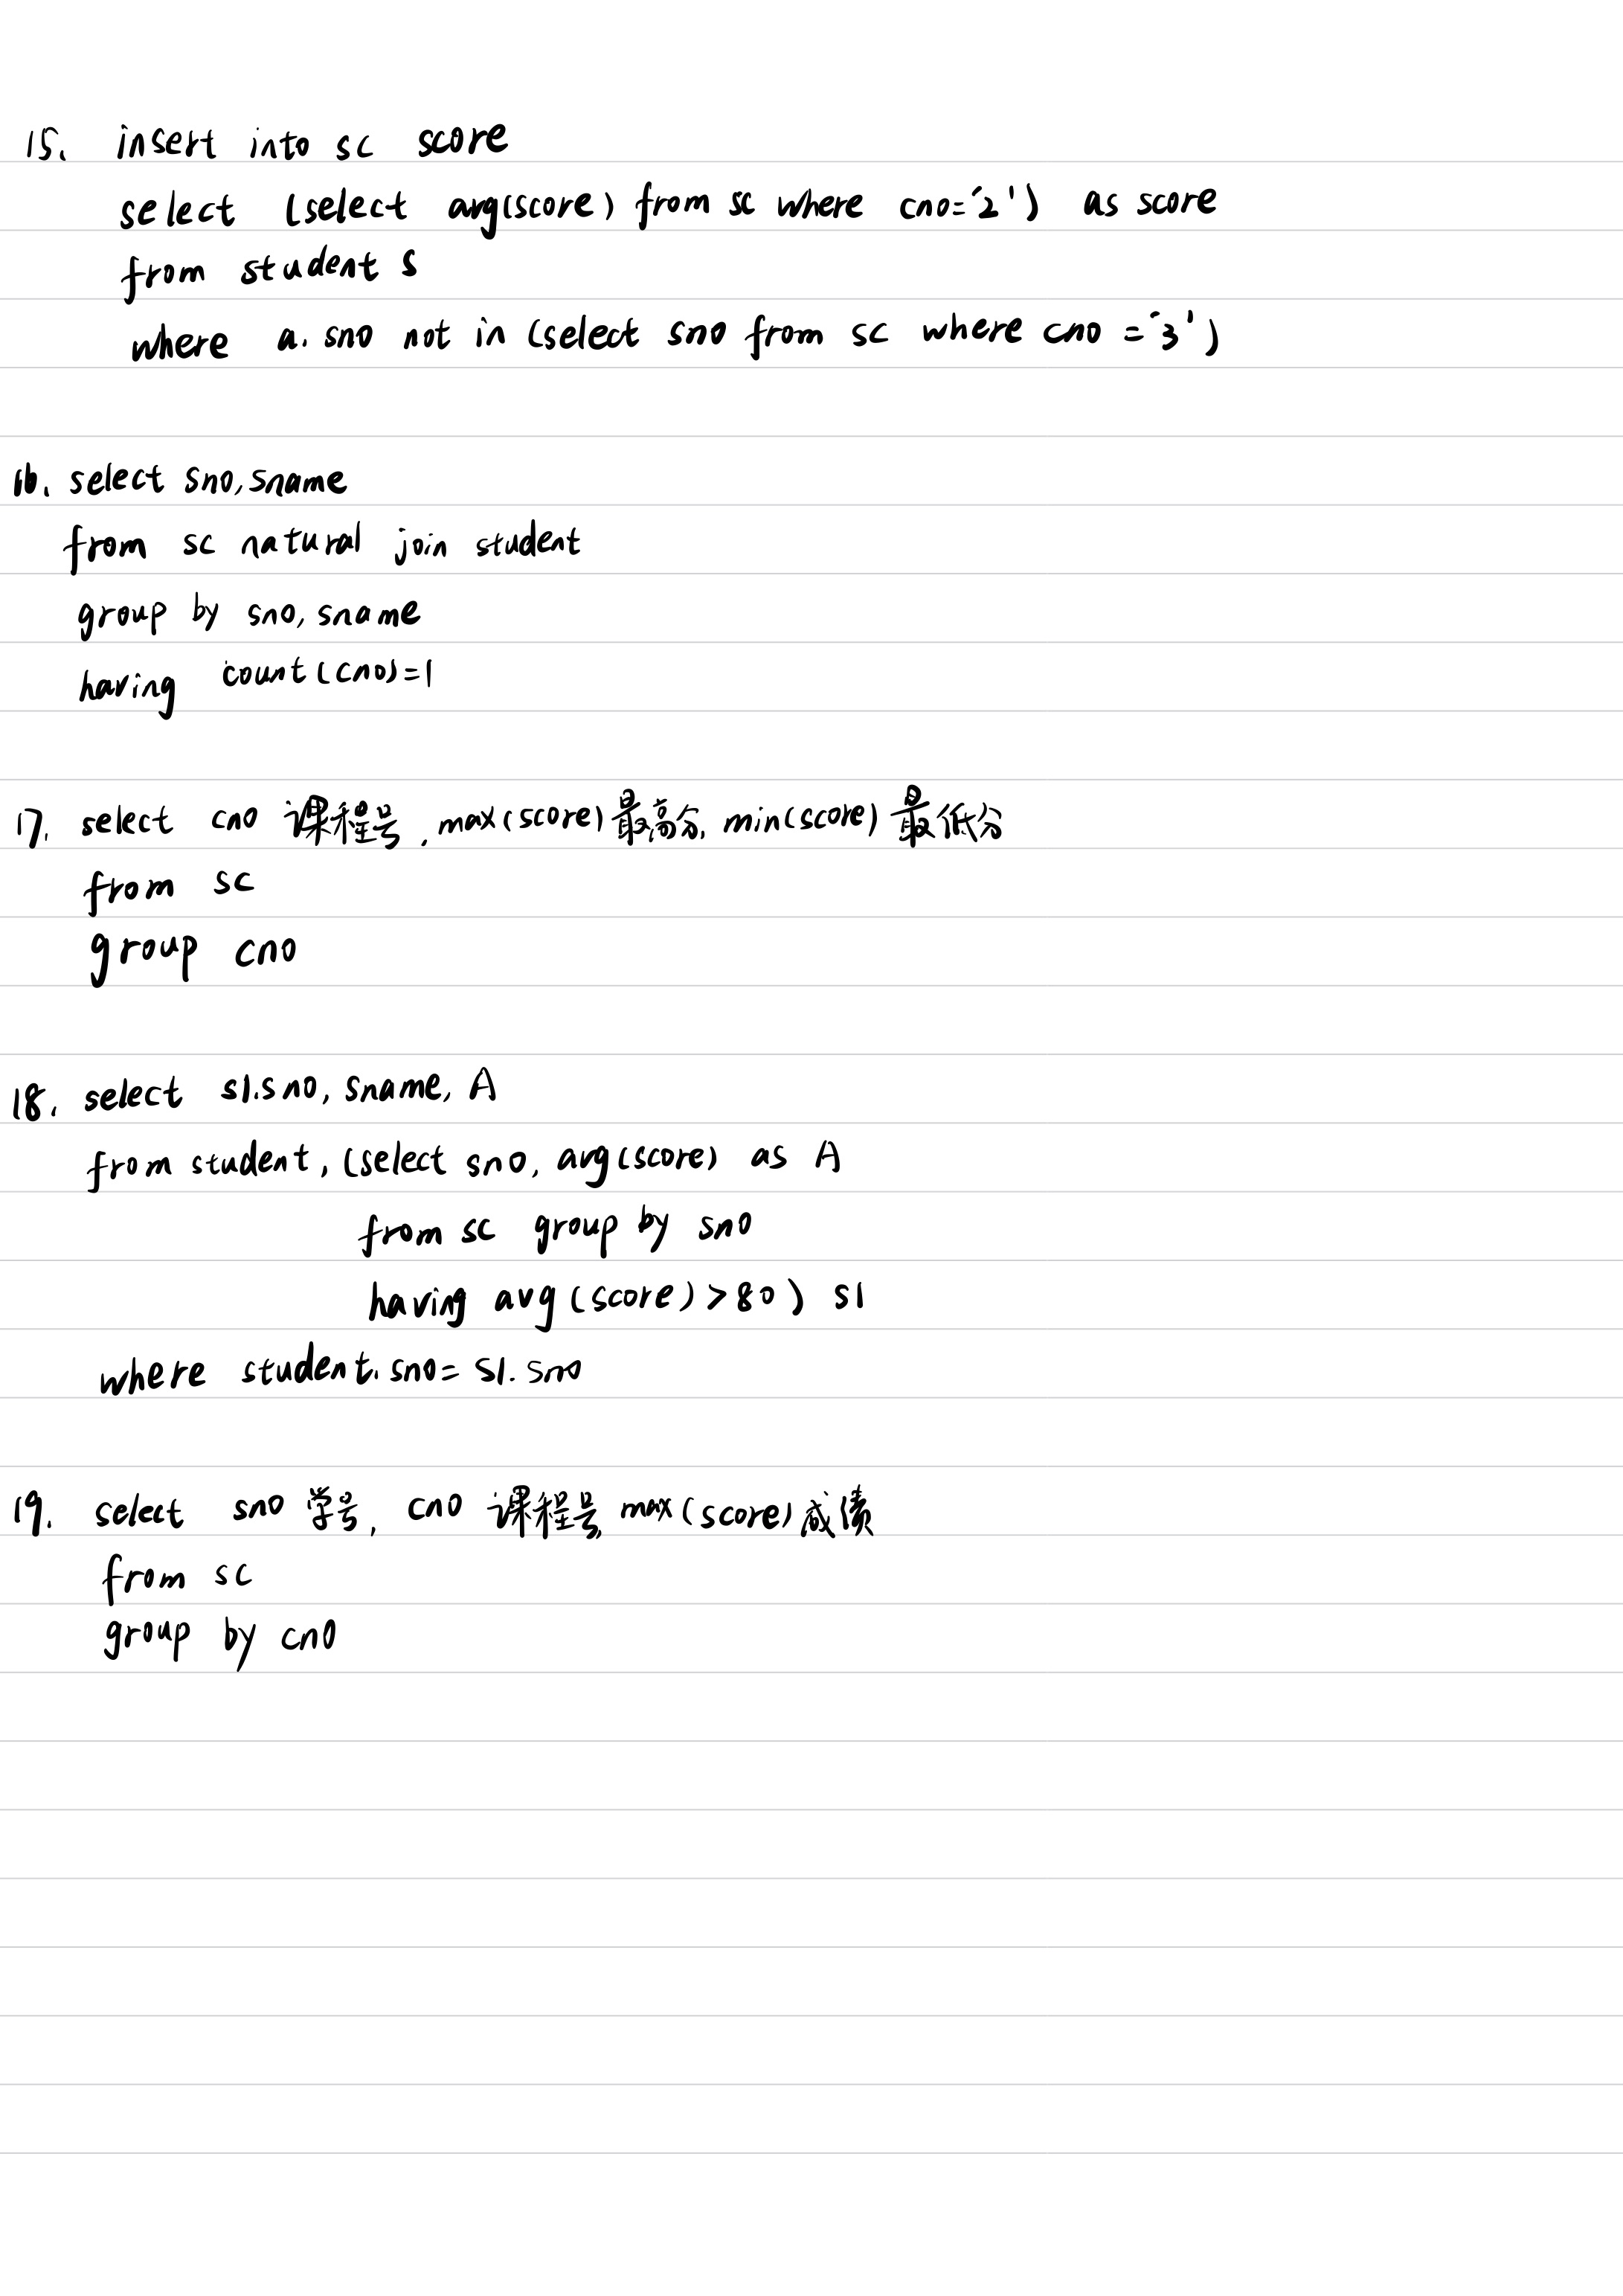 15. insert into sc score
select (select avg(score) from sc where cno='2') as score
from student s
where a.sno not in (select sno from sc where cno='3')
16. select sno, sname
from sc natural join student
group by sno, sname
having count(cno)=1
17. select cno 课程号, max(score) 最高分, min(score) 最低分
from sc
group cno
18. select s1.sno, sname, A
from student, (select sno, avg(score) as A
from sc group by sno
having avg(score)>80) s1
where student.sno=s1.sno
19. select sno 学号, cno 课程号, max(score) 成绩
from sc
group by cno